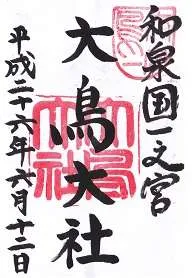 和泉国一之宮
大鳥大社
平成二十六年六月十二日
大鳥大社